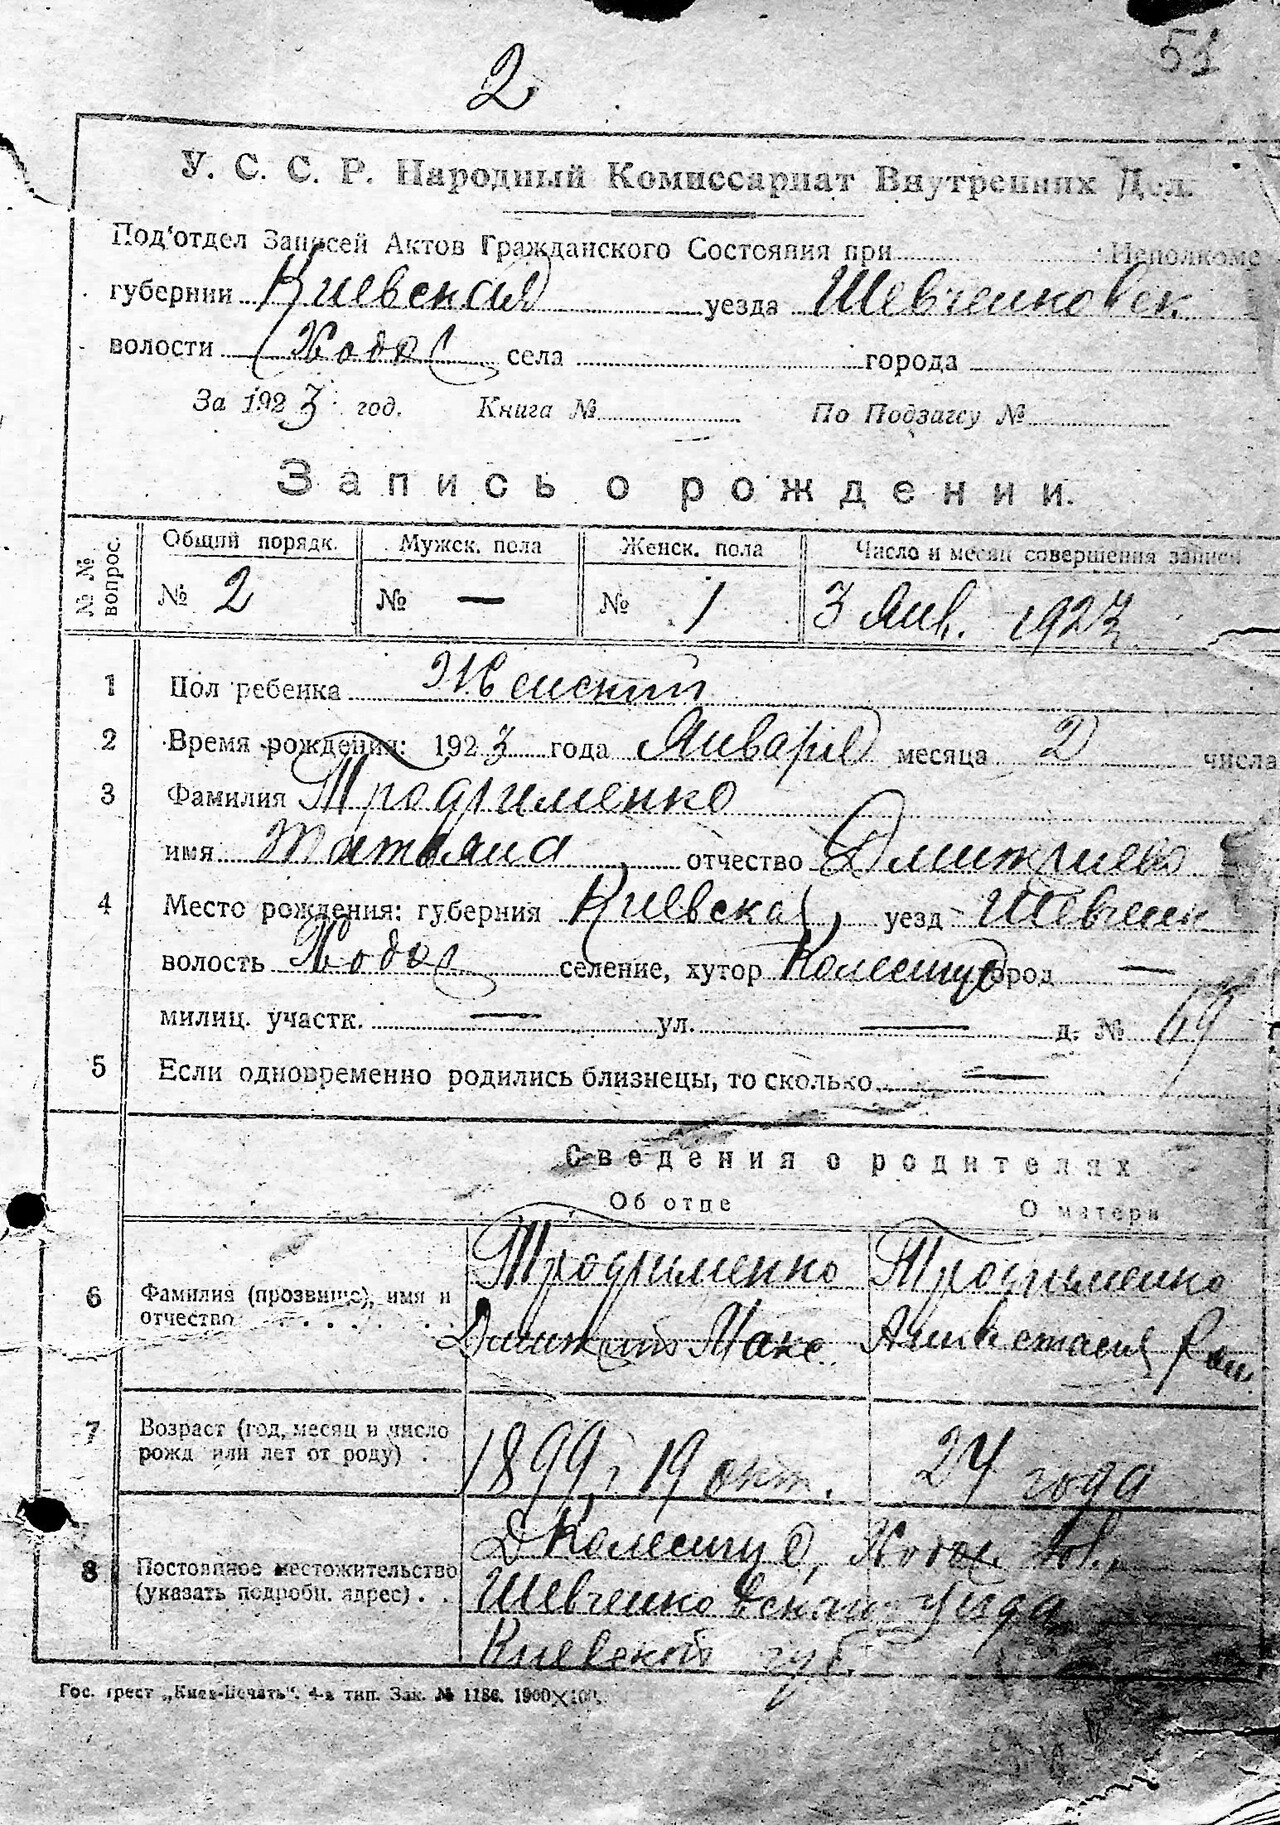 51
2
У. С. С. Р. Народный Комиссариат Внутренних Дел.
Под'отдел Записей Актов Гражданского Состояния при Исполкоме
губернии Киевская уезда Шевченковск
волости Ходор села города
За 1923 год. Книга № По Подзагсу №
Запись о рождении.
№ № вопрос. Общий порядк. Мужск. пола Женск. пола Число и месяц совершения записи
№ 2 № — № 1 3 Янв. 1923
1 Пол ребенка Женский
2 Время рождения: 1923 года Января месяца 2 числа
3 Фамилия Трофименко
имя Татьяна отчество Дмитриева
4 Место рождения: губерния Киевская уезд Шевченк
волость Ходор селение, хутор Колесищ город —
милиц. участк. — ул. — д. № 69
5 Если одновременно родились близнецы, то сколько —
Сведения о родителях
Об отце О матери
6 Фамилия (прозвище), имя и отчество Трофименко Трофименко
Дмитрий Макс. Анастасия Ром.
7 Возраст (год, месяц и число рожд или лет от роду) . . 1899 г 19 окт. 24 года
8 Постоянное местожительство (указать подробн. адрес) . . Д Колесищ, Ходор. вол.,
Шевченковского уезда
Киевской губ.
Гос. трест „Киев-Печать". 4-я тип. Зак. № 1186. 1900×100.